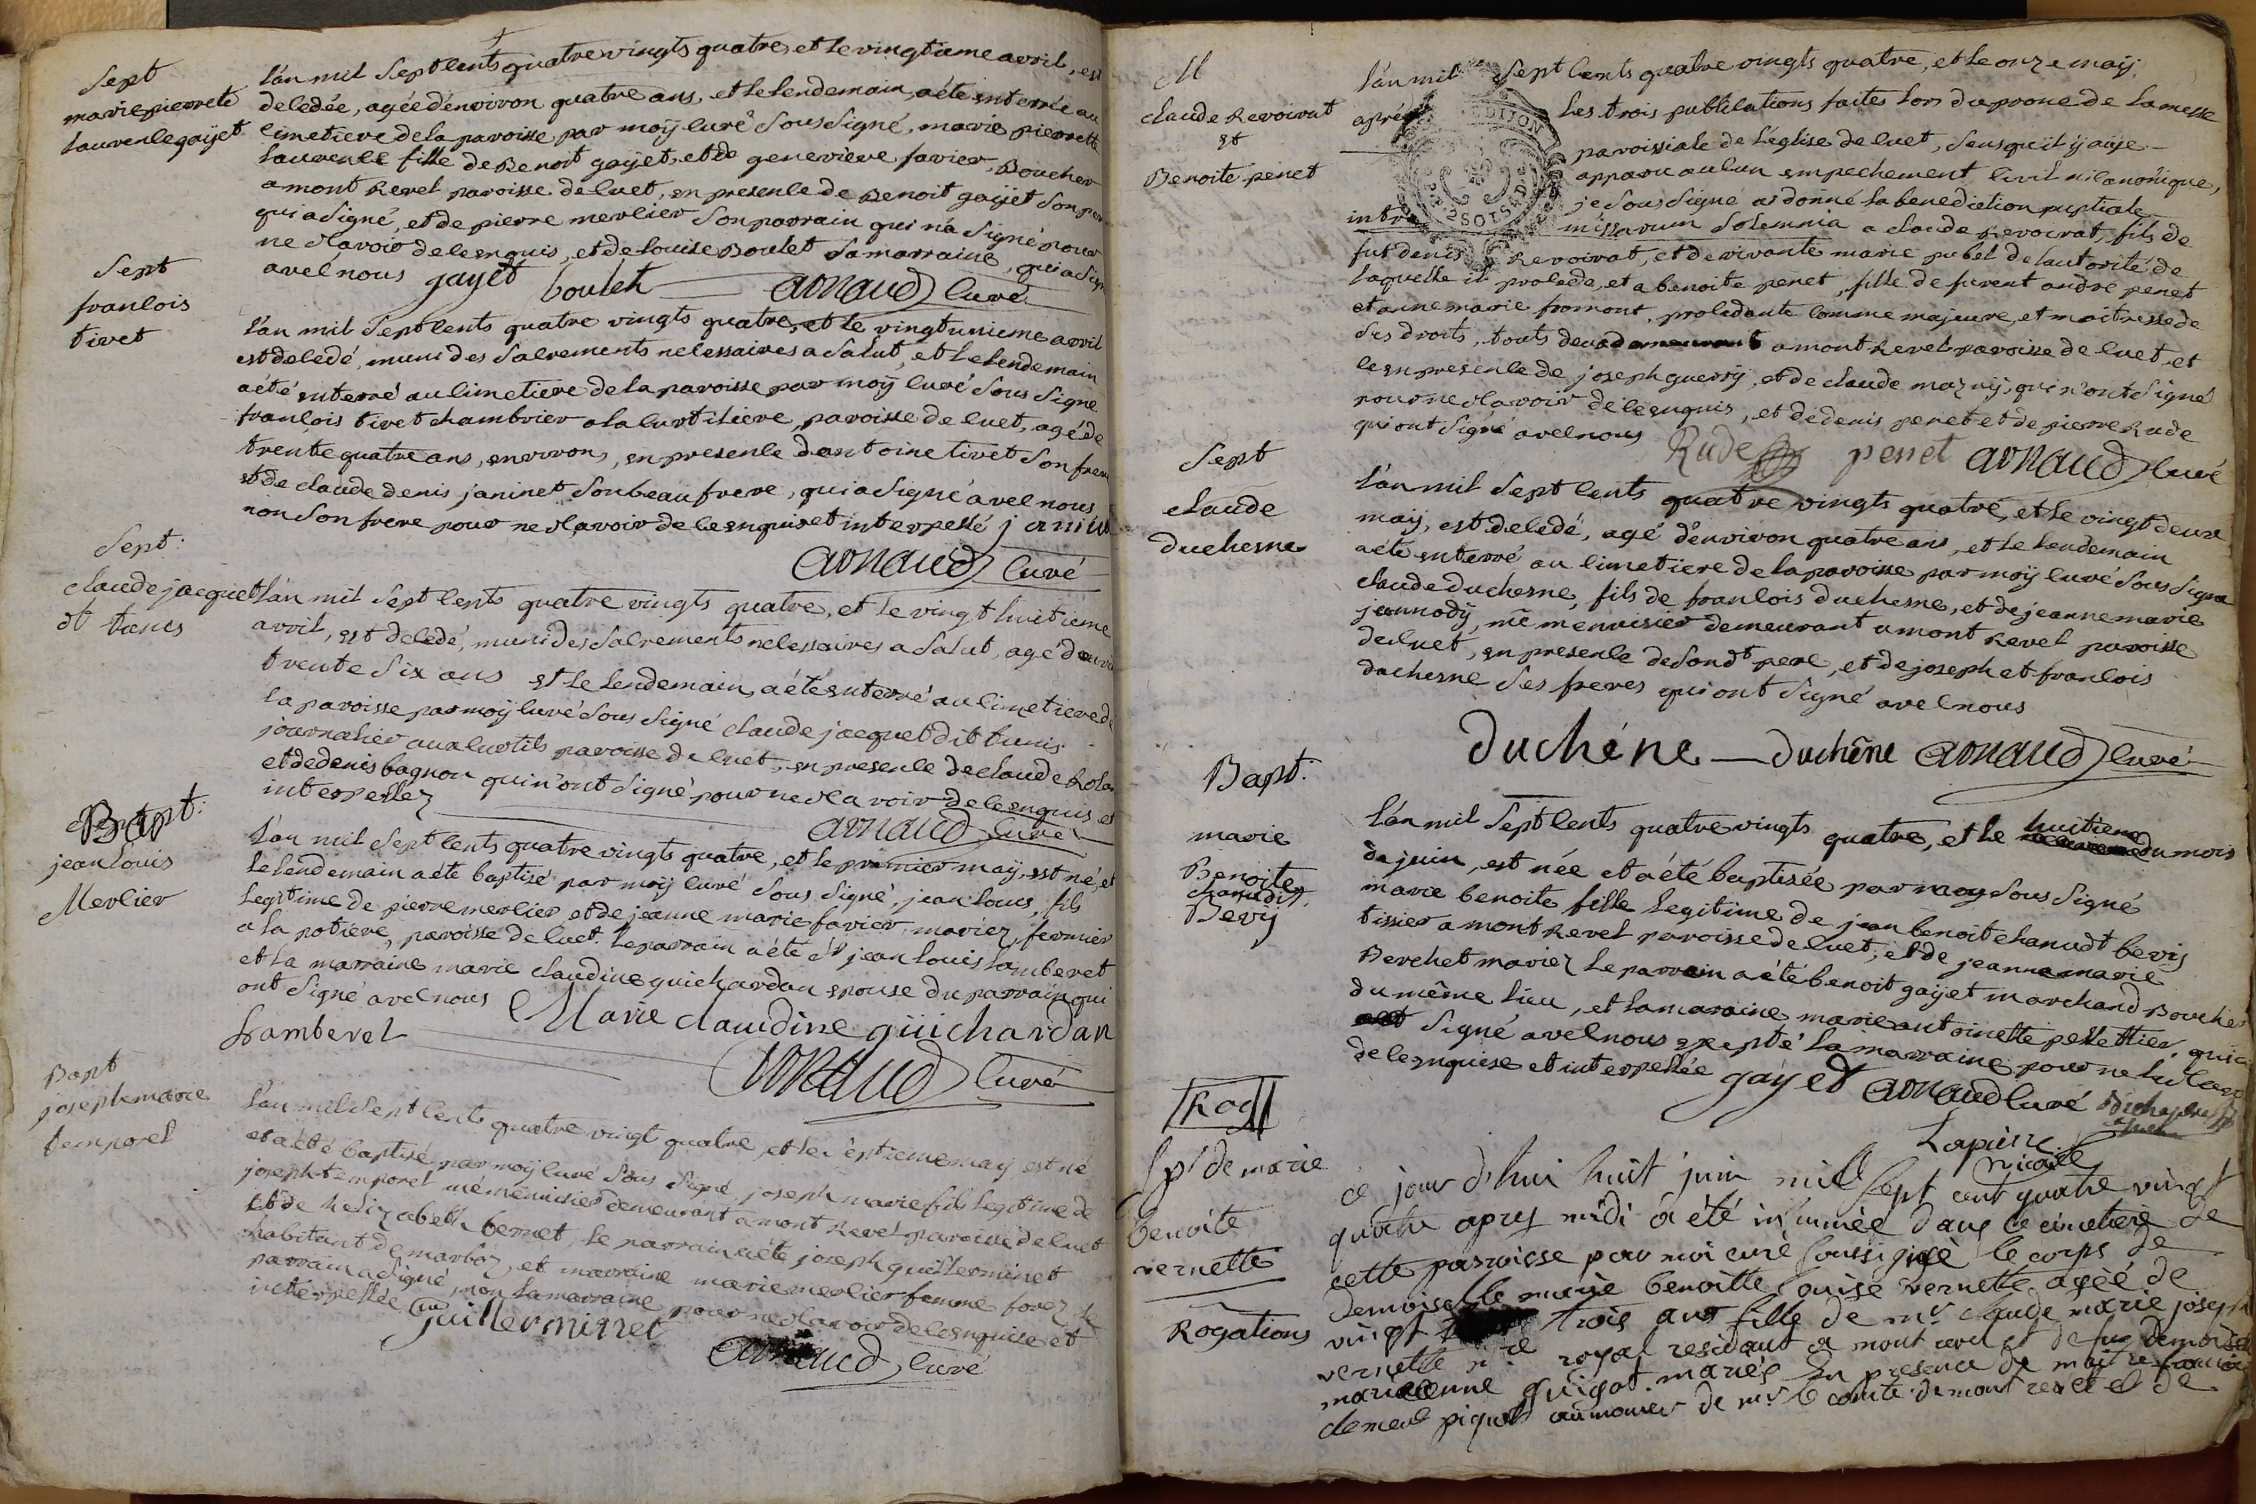 Sept
marie pierrete
laurence gayet
L'an mil Sept cents quatre vingts quatre, et le vingtieme avril, est
decedée, agée d'environ quatre ans, et le lendemain, a été enterrée au
cimetiere de la paroisse par moÿ curé Sous Signé, marie pierrette
laurence fille de Benoit gaÿet, et de geneviève favier, Boucher
a mont Revel paroisse de cuet, en presence de Benoit gaÿet Son pere
qui a Signé, et de pierre merlier Son parrain qui n'a Signé pour
ne Scavoir de ce enquis, et de louise Boulet Sa marraine, qui a Signé
avec nous gayet boulet arnaud curé
Sept
francois
tivet
L'an mil Sept cents quatre vingts quatre, et le vingt unieme avril
est decedé, muni des Sacrements necessaires a Salut, et le lendemain
a été enterré au cimetiere de la paroisse par moÿ curé Sous Signé
francois tivet chambrier a la curtiliere, paroisse de cuet, agé de
trente quatre ans, environ, en presence d'antoine tivet Son frere
et de claude denis janinet Son beau frere, qui a Signé avec nous
non Son frere pour ne Scavoir de ce enquis et interpellé janinet
arnaud curé
Sept:
claude jacquet
dt tunis
L'an mil Sept cents quatre vingts quatre, et le vingt huitieme
avril, est decedé, muni des Sacrements necessaires a Salut, agé d'environ
trente Six ans et le lendemain, a été enterré au cimetiere de
la paroisse par moÿ curé Sous Signé claude jacquet dit tunis
journalier aux curtils paroisse de cuet, en presence de claude
et de denis bagnon qui n'ont Signé pour ne Scavoir de ce enquis et
interpellez arnaud curé
Bapt:
jean louis
Merlier
L'an mil Sept cents quatre vingts quatre, et le premier maÿ, est né, et
le lendemain a été baptisé par moÿ curé Sous Signé, jean louis, fils
legitime de pierre merlier, et de jeanne marie favier, mariez, fermier
a la potiere, paroisse de cuet. Le parrain a été Sr jean louis lamberet
et la marraine marie claudine guichardan epouse du parrain qui
ont Signé avec nous Marie claudine guichardan
Lamberet
arnaud curé
Bapt
joseph marie
temporel
L'an mil Sept cents quatre vingt quatre et le Septieme maÿ est né
et a été baptisé par moÿ curé Sous Signé, joseph marie fils legitime de
joseph temporel me menuisier demeurant a mont Revel paroisse de cuet
et de helizabeth bernet, le parrain a été joseph guillerminet
habitant de marboz, et marraine marie merlier femme forez le
parrain a Signé, non la marraine pour ne Scavoir de ce enquise et
interpellée Guillerminet
arnaud curé
M
claude Revoirat
et
Benoite penet
L'an mil Sept cents quatre vingts quatre, et le onze maÿ,
après les trois publications faites lors du prone de la messe
paroissiale de l'église de cuet, Sans qu'il ÿ aÿe
apparu aucun empechement civil ni canonique,
je Sous Signé ai donné la benediction nuptiale
intra missarum Solemnia a claude Revoirat, fils de
fut denis Revoirat, et de vivante marie pubel de l'autorité de
laquelle il procede, et a benoite penet, fille de furent andré penet
et anne marie fromont, procedante comme majeure, et maitresse de
Ses droits, touts deux a mont Revel paroisse de cuet, et
ce en presence de joseph guerrÿ, et de claude mazuÿ, qui n'ont Signé
pour ne Scavoir de ce enquis, et de denis penet et de pierre Rude
qui ont Signé avec nous Rude penet arnaud curé
Sept
claude
duchesne
L'an mil Sept cents quatre vingts quatre, et le vingt deux
maÿ, est decedé, agé d'environ quatre ans, et le lendemain
a été enterré au cimetiere de la paroisse par moÿ curé Sous Signé
claude duchesne, fils de francois duchesne, et de jeanne marie
jannodÿ, me menuisier demeurant a mont Revel paroisse
de cuet, en presence de Son dt pere, et de joseph et francois
duchesne Ses freres qui ont Signé avec nous
duchéne duchêne arnaud curé
Bapt:
marie
Benoite
chanudt
Bevÿ
L'an mil Sept cents quatre vingts quatre, et le huitieme du mois
de juin, est née et a été baptisée par moy Sous Signé
marie benoite fille legitime de jean benoit chanudt bevis
tissier a mont Revel paroisse de cuet, et de jeanne marie
Berchet mariez le parrain a été benoit gaÿet marchand Boucher
du même lieu, et la maraine marie antoinette pellettier, qui a
Signé avec nous excepté la marraine pour ne le Scavoir
de ce enquise et interpellée gayet arnaud curé
Rog
Sp.re de marie
benoite
vernette
Rogations
Lapierre
vicaire
ce jour d'hui huit juin mil sept cent quatre vingt
quatre apres midi a été inhumée dans le cimetiere de
cette parroisse par moi curé soussigné le corps de
demoiselle marie benoitte louise vernette agéé de
vingt trois ans fille de mr claude marie joseph
vernette nre royal residant a mont revel et de fue demoiselle
marieanne guigot mariés en presence de maitre francois
clement piquet aumonier de mr le comte de mont revel et de